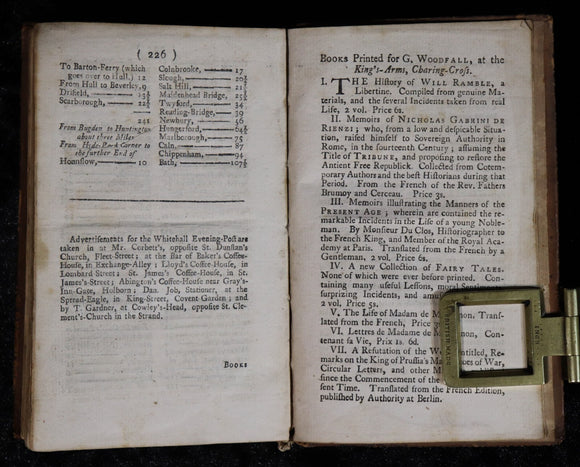 ( 226 )
To Barton-Ferry (which
goes over to Hull.) 12
From Hull to Beverley, 9
Drifield, 23½
Scarborough, 22½
241
From Bugden to Huntington
about three Miles
From Hyde-Park Corner to
the farther End of
Hounslow, 10
Colnbrooke, 17
Slough, 20½
Salt Hill, 21½
Maidenhead Bridge, 25½
Twyford, 34
Reading-Bridge, 39
Newbury, 56
Hungerford, 64½
Marlborough, 75
Caln, 87
Chippenham, 94
Bath, 107½
Advertisements for the Whitehall Evening-Post are
taken in at Mr. Corbett's, opposite St. Dunstan's
Church, Fleet-Street; at the Bar of Baker's Coffee-
House, in Exchange-Alley; Lloyd's Coffee-House, in
Lombard Street; St. James's Coffee-House, in St.
James's-Street; Abington's Coffee-House near Gray's-
Inn-Gate, Holborn; Dan. Job, Stationer, at the
Spread-Eagle, in King-Street, Covent Garden; and
by T. Gardner, at Cowley's-Head, opposite St. Cle-
ment's-Church in the Strand.
BOOKS
BOOKS Printed for G. WOODFALL, at the
King's-Arms, Charing-Cross.
I. THE History of WILL RAMBLE, a
Libertine. Compiled from genuine Ma-
terials, and the several Incidents taken from real
Life, 2 vol. Price 6s.
II. Memoirs of NICHOLAS GABRINI DE
RIENZI; who, from a low and despicable Situa-
tion, raised himself to Sovereign Authority in
Rome, in the fourteenth Century; assuming the
Title of TRIBUNE, and proposing to restore the
Antient Free Republick. Collected from Cotem-
porary Authors and the best Historians during that
Period. From the French of the Rev. Fathers
Brumoy and Cerceau. Price 3s.
III. Memoirs illustrating the Manners of the
PRESENT AGE; wherein are contained the re-
markable Incidents in the Life of a young Noble-
man. By Monsieur Du Clos, Historiographer to
the French King, and Member of the Royal Aca-
demy at Paris. Translated from the French by a
Gentleman, 2 vol. Price 6s.
IV. A new Collection of FAIRY TALES.
None of which were ever before printed. Con-
taining many useful Lessons, moral
surprizing Incidents, and
2 vol. Price 5s.
V. The Life of Madam de non. Trans-
lated from the French, Price
VI. Lettres de Madame de non, Con-
tenant sa Vie, Prix 1s. 6d.
VII. A Refutation of the ntitled, Re-
marks on the King of Prussia's of War,
Circular Letters, and other
since the Commencement of the
sent Time. Translated from the French Edition,
published by Authority at Berlin.